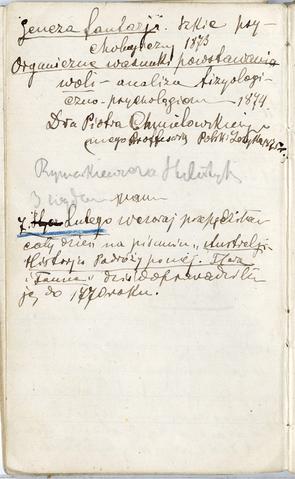 Geneza fantazji. Szkic psy-
chologiczny 1873
Organiczne warunki powstawania
woli - analiza fizyologi-
czno-psychologiczna 1874.
Dra Piotra Chmielowskiej
Professora Polski
Rymarkiewicza
3 wydan
7 lutego wczoraj przepędziłam
cały dzień na pisaniu „Australji
Historja Podróży Flora
i Fauna" dziś doprowadziłam
ją do 1770 roku.